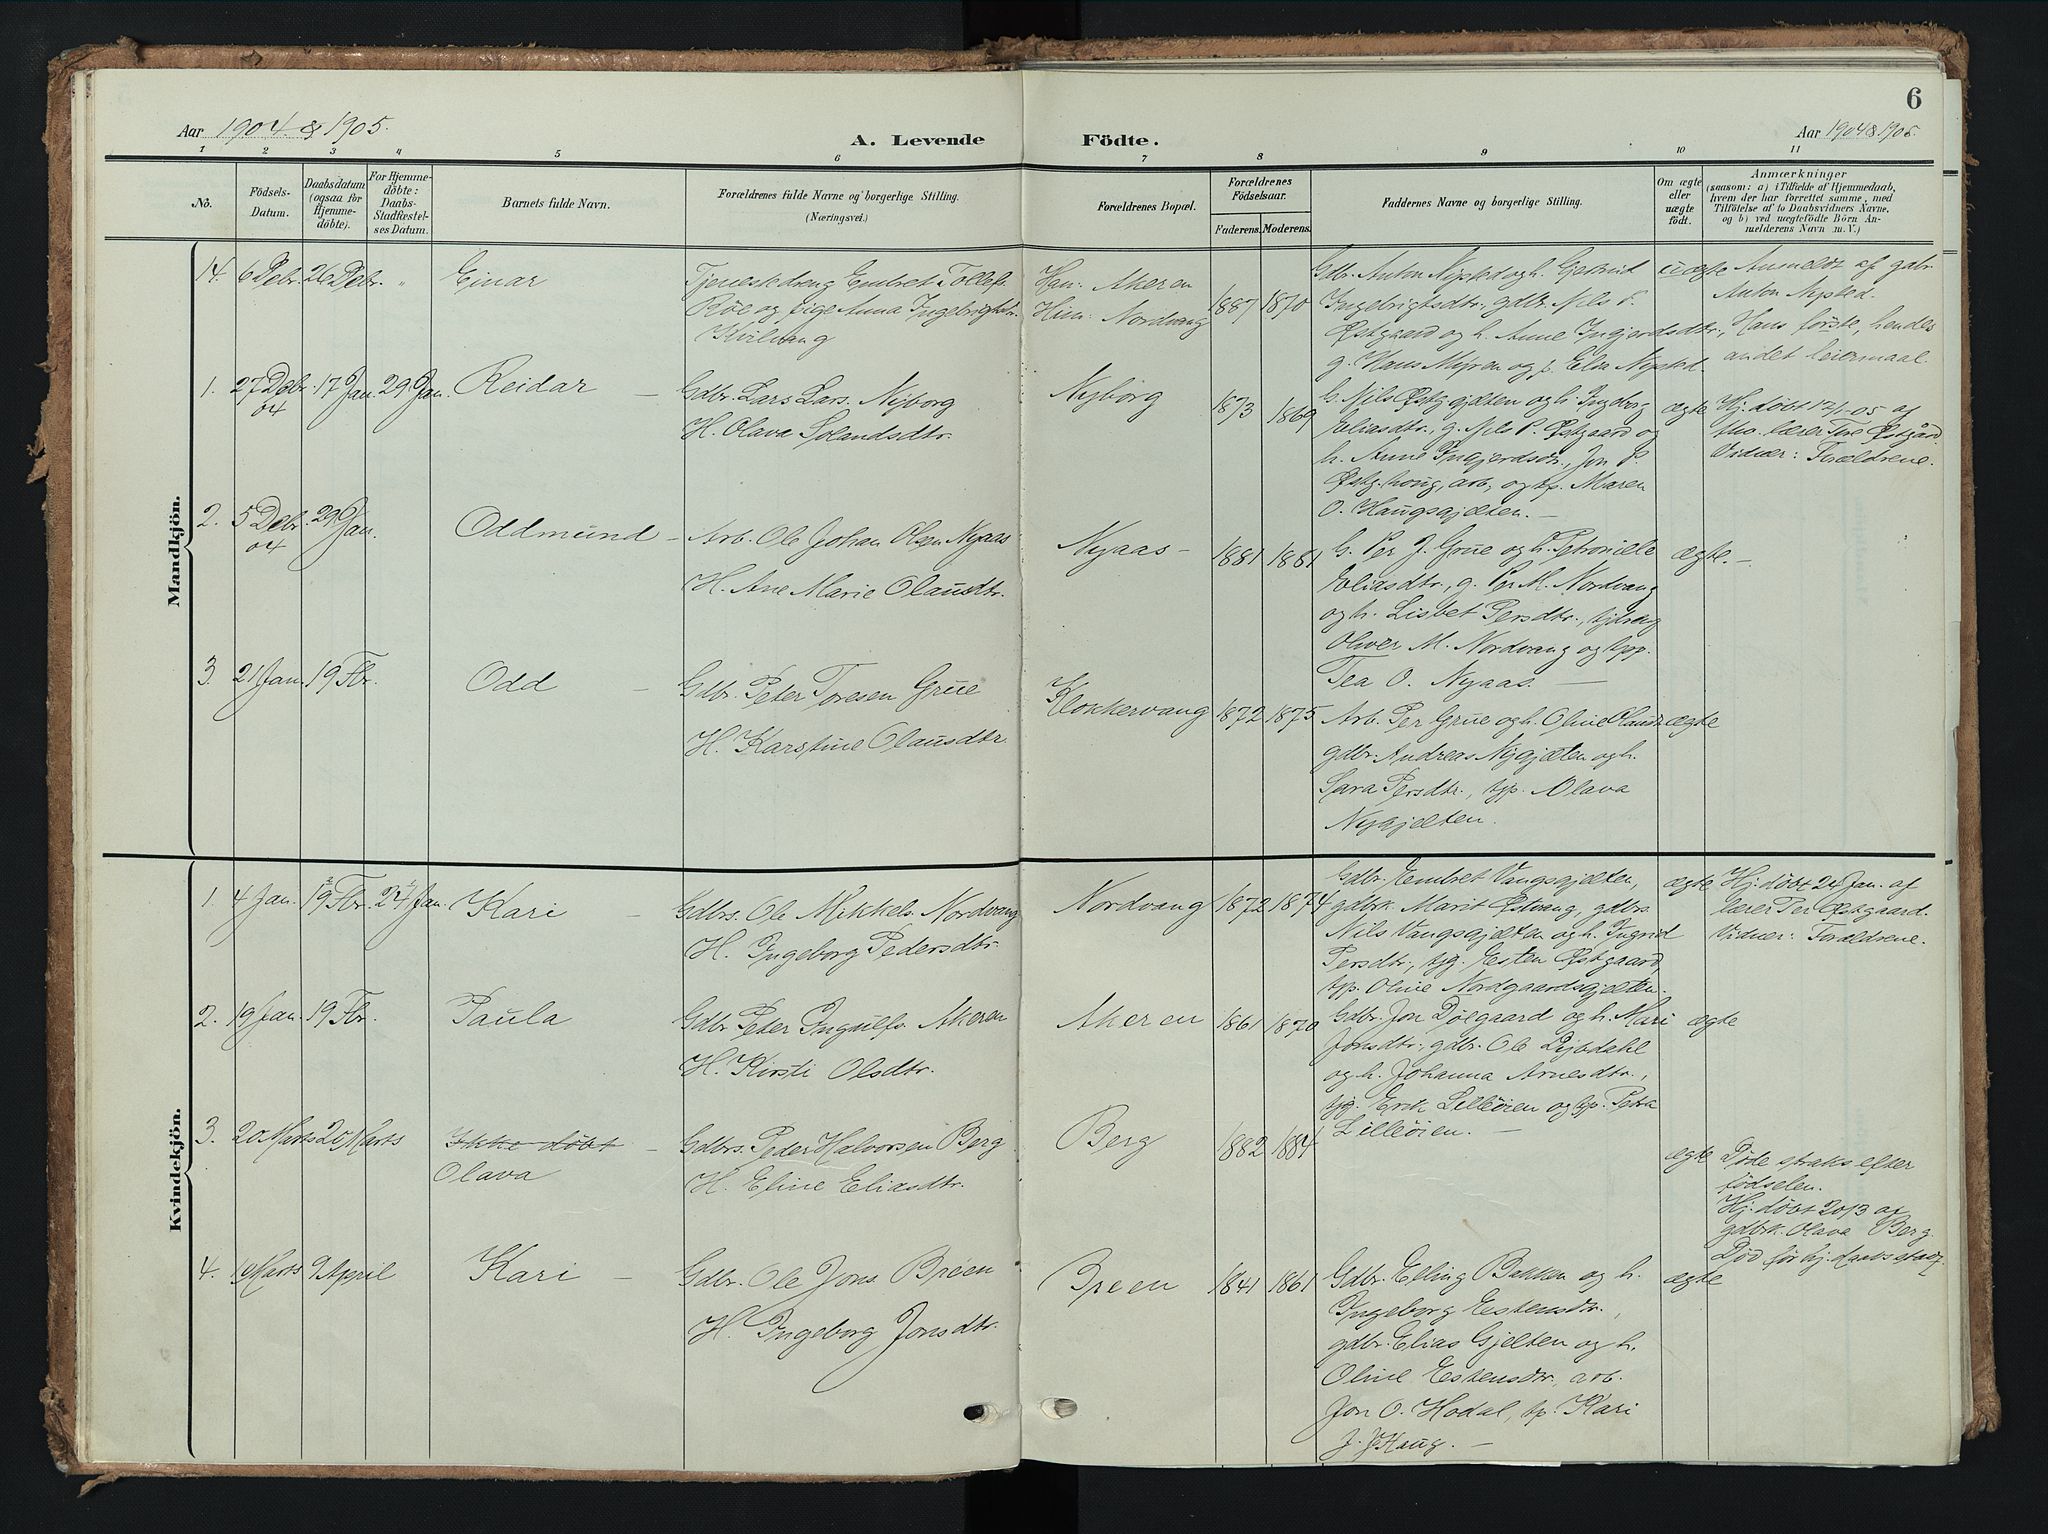 6
Aar 1904 & 1905.
A. Levende Födte.
Aar 1904 & 1905.
1 2 3 4 5 6 7 8 9 10 11
No.
Födsels-Datum.
Daabsdatum (ogsaa for Hjemme-döbte).
For Hjemme-döbte: Daabs-Stadfæstel-ses Datum.
Barnets fulde Navn.
Forældrenes fulde Navne og borgerlige Stilling.
(Næringsvei.)
Forældrenes Bopæl.
Forældrenes Födselsaar.
Faderens. Moderens.
Faddernes Navne og borgerlige Stilling.
Om ægte eller uægte födt.
Anmærkninger
(saasom: a) i Tilfælde af Hjemmedaab,
hvem der har forrettet samme, med
Tilföielse af to Daabsvidners Navne,
og b) ved uægtefödte Börn An-
melderens Navn m.V.)
Mandkjön.
14. 6 Debr. 26 Debr. " Einar
Tjenestedreng Embret Tollefs.
Röe og pige Anna Ingebrigtsdtr.
Kvilvang
Han: Akeren
Hun: Nordvang
1887 1870
Gdbr. Anton Nysted og h. Gjertrud
Ingebrigtsdtr., gdbr. Nils P.
Østgaard og h. Anne Ingjerdsdtr.,
g. Hans Myren og p. Elen Nysted.
uægte
Anmeldt af gdbr.
Anton Nysted.
Hans første, hendes
andet leiermaal.
1. 27 Debr. 04 17 Jan. 29 Jan. Reidar –
Gdbr. Lars Lars. Nyborg
H. Olava Solandsdtr.
Nyborg
1873 1869
G. Nils Østgjelten og h. Ingeborg
Eliasdtr., g. Nils P. Østgaard og
h. Anne Ingjerdsdtr., Jon P.
Østg.houg, arb., og tp. Maren
O. Haugsgjelten. –
ægte
Hj. døbt 17/1-05 af
lærer Tore Østgård.
Vidner: Forældrene.
2. 5 Debr. 04 29 Jan. Oddmund –
Arb. Ole Johan Olsen Nyaas
H. Ane Marie Olausdtr.
Nyaas –
1881 1881
G. Per J. Grue og h. Petronille
Eliasdtr., g. Per M. Nordvang
og h. Lisbet Persdtr., tjdreng
Oliver M. Nordvang og tjp.
Tea O. Nyaas. –
ægte. –
3. 21 Jan. 19 Fbr. Odd –
Gdbr. Peter Toresen Grue
H. Karstine Olausdtr.
Klokkervang
1872 1875
Arb. Per Grue og h. Oline Olausdtr.
gdbr. Andreas Nygjelten og h.
Sara Persdtr., tjp. Olava
Nygjelten.
ægte
Kvindekjön.
1. 4 Jan. 19 Fbr. 24 Jan. Kari –
Gdbrs. Ole Mikkels. Nordvang
H. Ingeborg Pedersdtr.
Nordvang
1872 1874
Gdbr. Embret Vangsgjelten,
gdbrk. Marit Østvang, gdbrs.
Nils Vangsgjelten og h. Ingrid
Persdtr., tjg. Esten Østgaard,
tjp. Oline Nordgaardsgjelten.
ægte
Hj. døbt 24 Jan. af
lærer Per Østgaard.
Vidner: Forældrene.
2. 19 Jan. 19 Fbr. Paula
Gdbr. Peter Ingulfs. Akeren
H. Kirsti Olsdtr.
Akeren
1861 1870
Gdbr. Jon Dølgaard og h. Mari
Jonsdtr., gdbr. Ole Dybdahl
og h. Johanna Arnesdtr.,
tjg. Erik Lilleöien og tjp. Petra
Lilleöien. –
ægte
3. 20 Marts 20 Marts Ikke døbt –
Olava
Gdbrs. Peder Halvorsen Berg
H. Eline Eliasdtr.
Berg
1882 1884
ægte
Døde straks efter
fødselen.
Hj. døbt 20/3 af
gdbrk. Olava Berg.
Død før hj. daabs stadf.
4. 1 Marts 9 April Kari –
Gdbr. Ole Jons. Brøen
H. Ingeborg Jonsdtr.
Brøen
1841 1861
Gdbr. Elling Bakken og h.
Ingeborg Estensdtr.,
gdbr. Elias Gjelten og h.
Oline Estensdtr., arb.
Jon O. Hodal, tp. Kari
J. J. Haug. –
ægte